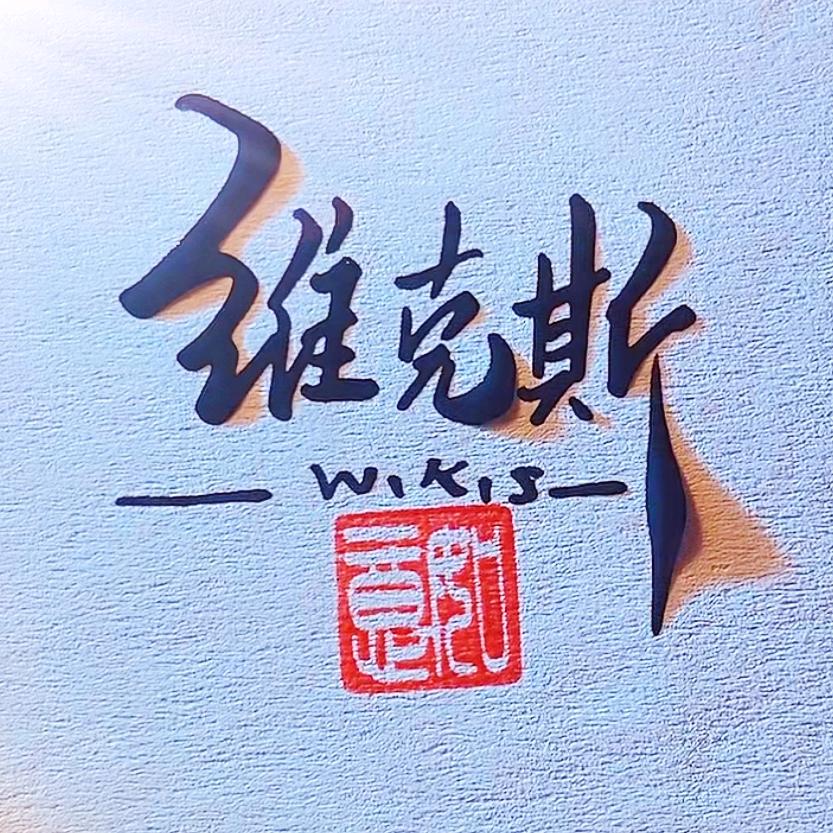 维克斯
WiKiS